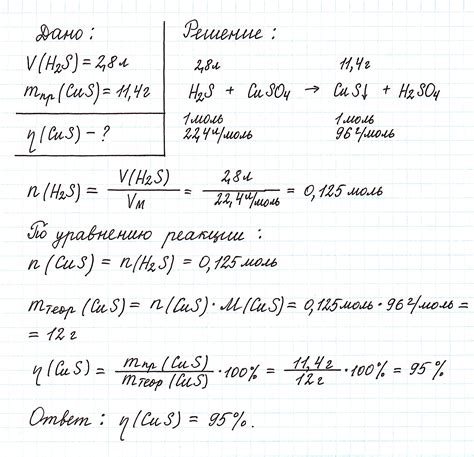 Дано:
V(H₂S) = 2,8 л
mпр(CuS) = 11,4 г
η(CuS) – ?
Решение:
2,8 л 11,4 г
H₂S + CuSO₄ → CuS↓ + H₂SO₄
1 моль 1 моль
22,4 л/моль 96 г/моль
n(H₂S) = V(H₂S) / Vм = 2,8 л / 22,4 л/моль = 0,125 моль
По уравнению реакции:
n(CuS) = n(H₂S) = 0,125 моль
mтеор(CuS) = n(CuS) · M(CuS) = 0,125 моль · 96 г/моль =
= 12 г
η(CuS) = mпр(CuS) / mтеор(CuS) · 100% = 11,4 г / 12 г · 100% = 95%
Ответ: η(CuS) = 95%.